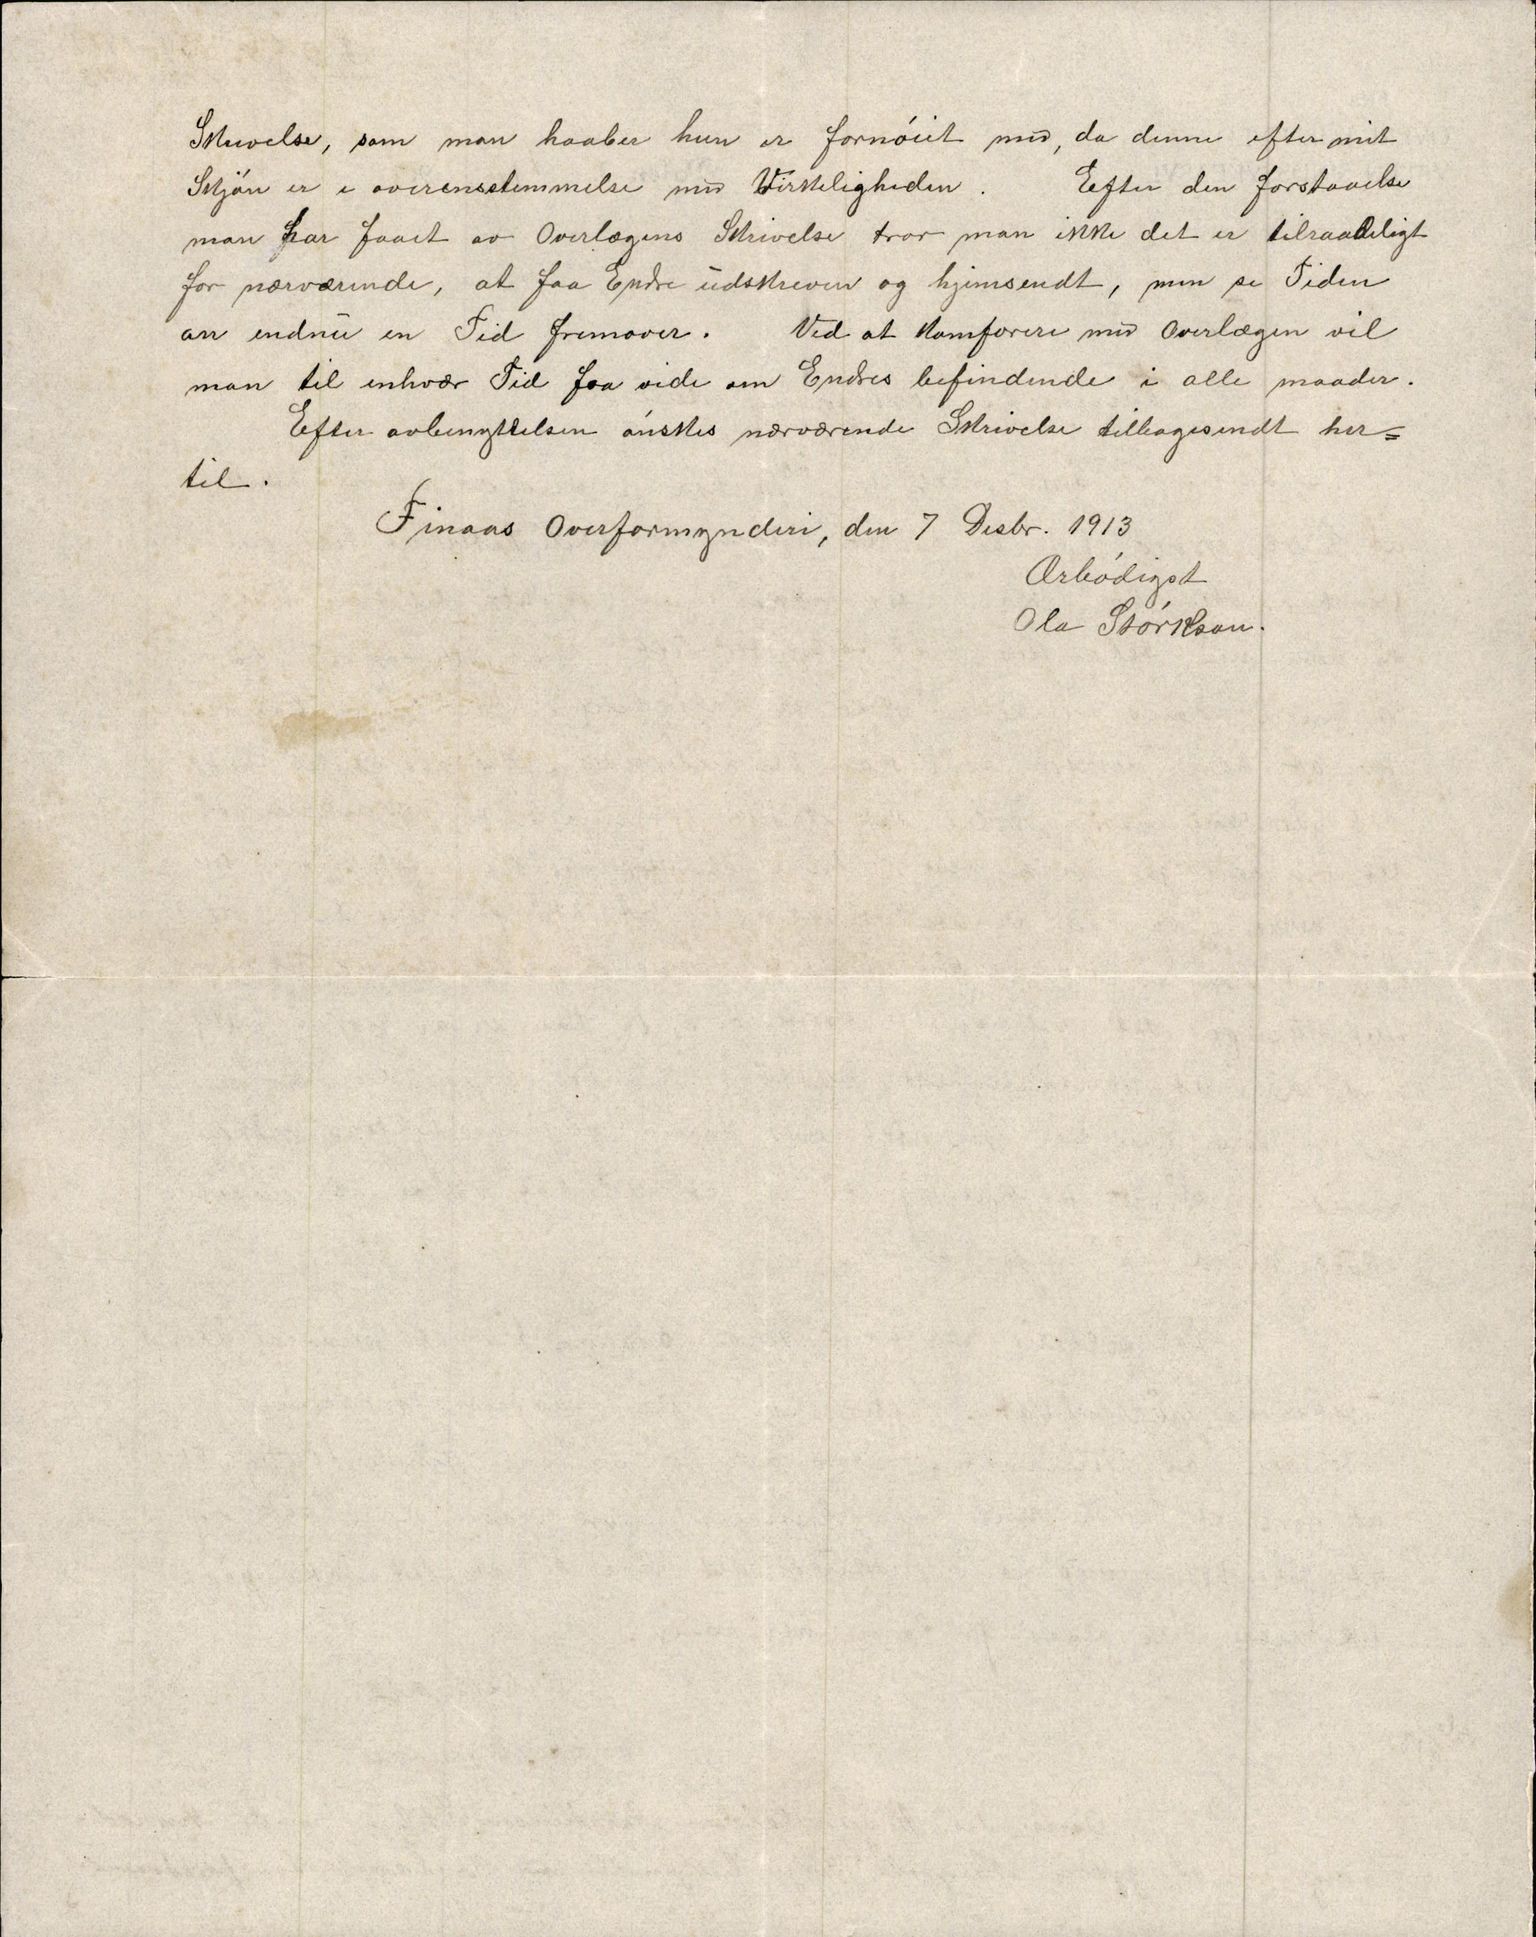 Skrivelse, som man haaber hun er fornöiet med, da denne efter mit
Skjön er i overensstemmelse med Virkeligheden. Efter den forstaaelse
man har faaet av Overlægens Skrivelse tror man ikke det er tilraadeligt
for nærværende, at faa Endre udskreven og hjemsendt, men se Tiden
an endnu en Tid fremover. Ved at konforere med Overlægen vil
man til enhvær Tid faa vide om Endres befindende i alle maader.
Efter avbenyttelsen önskes nærværende Skrivelse tilbagesendt her=
til.
Finaas Overformynderi, den 7 Desbr. 1913
Ærbödigst
Ola Störkson.